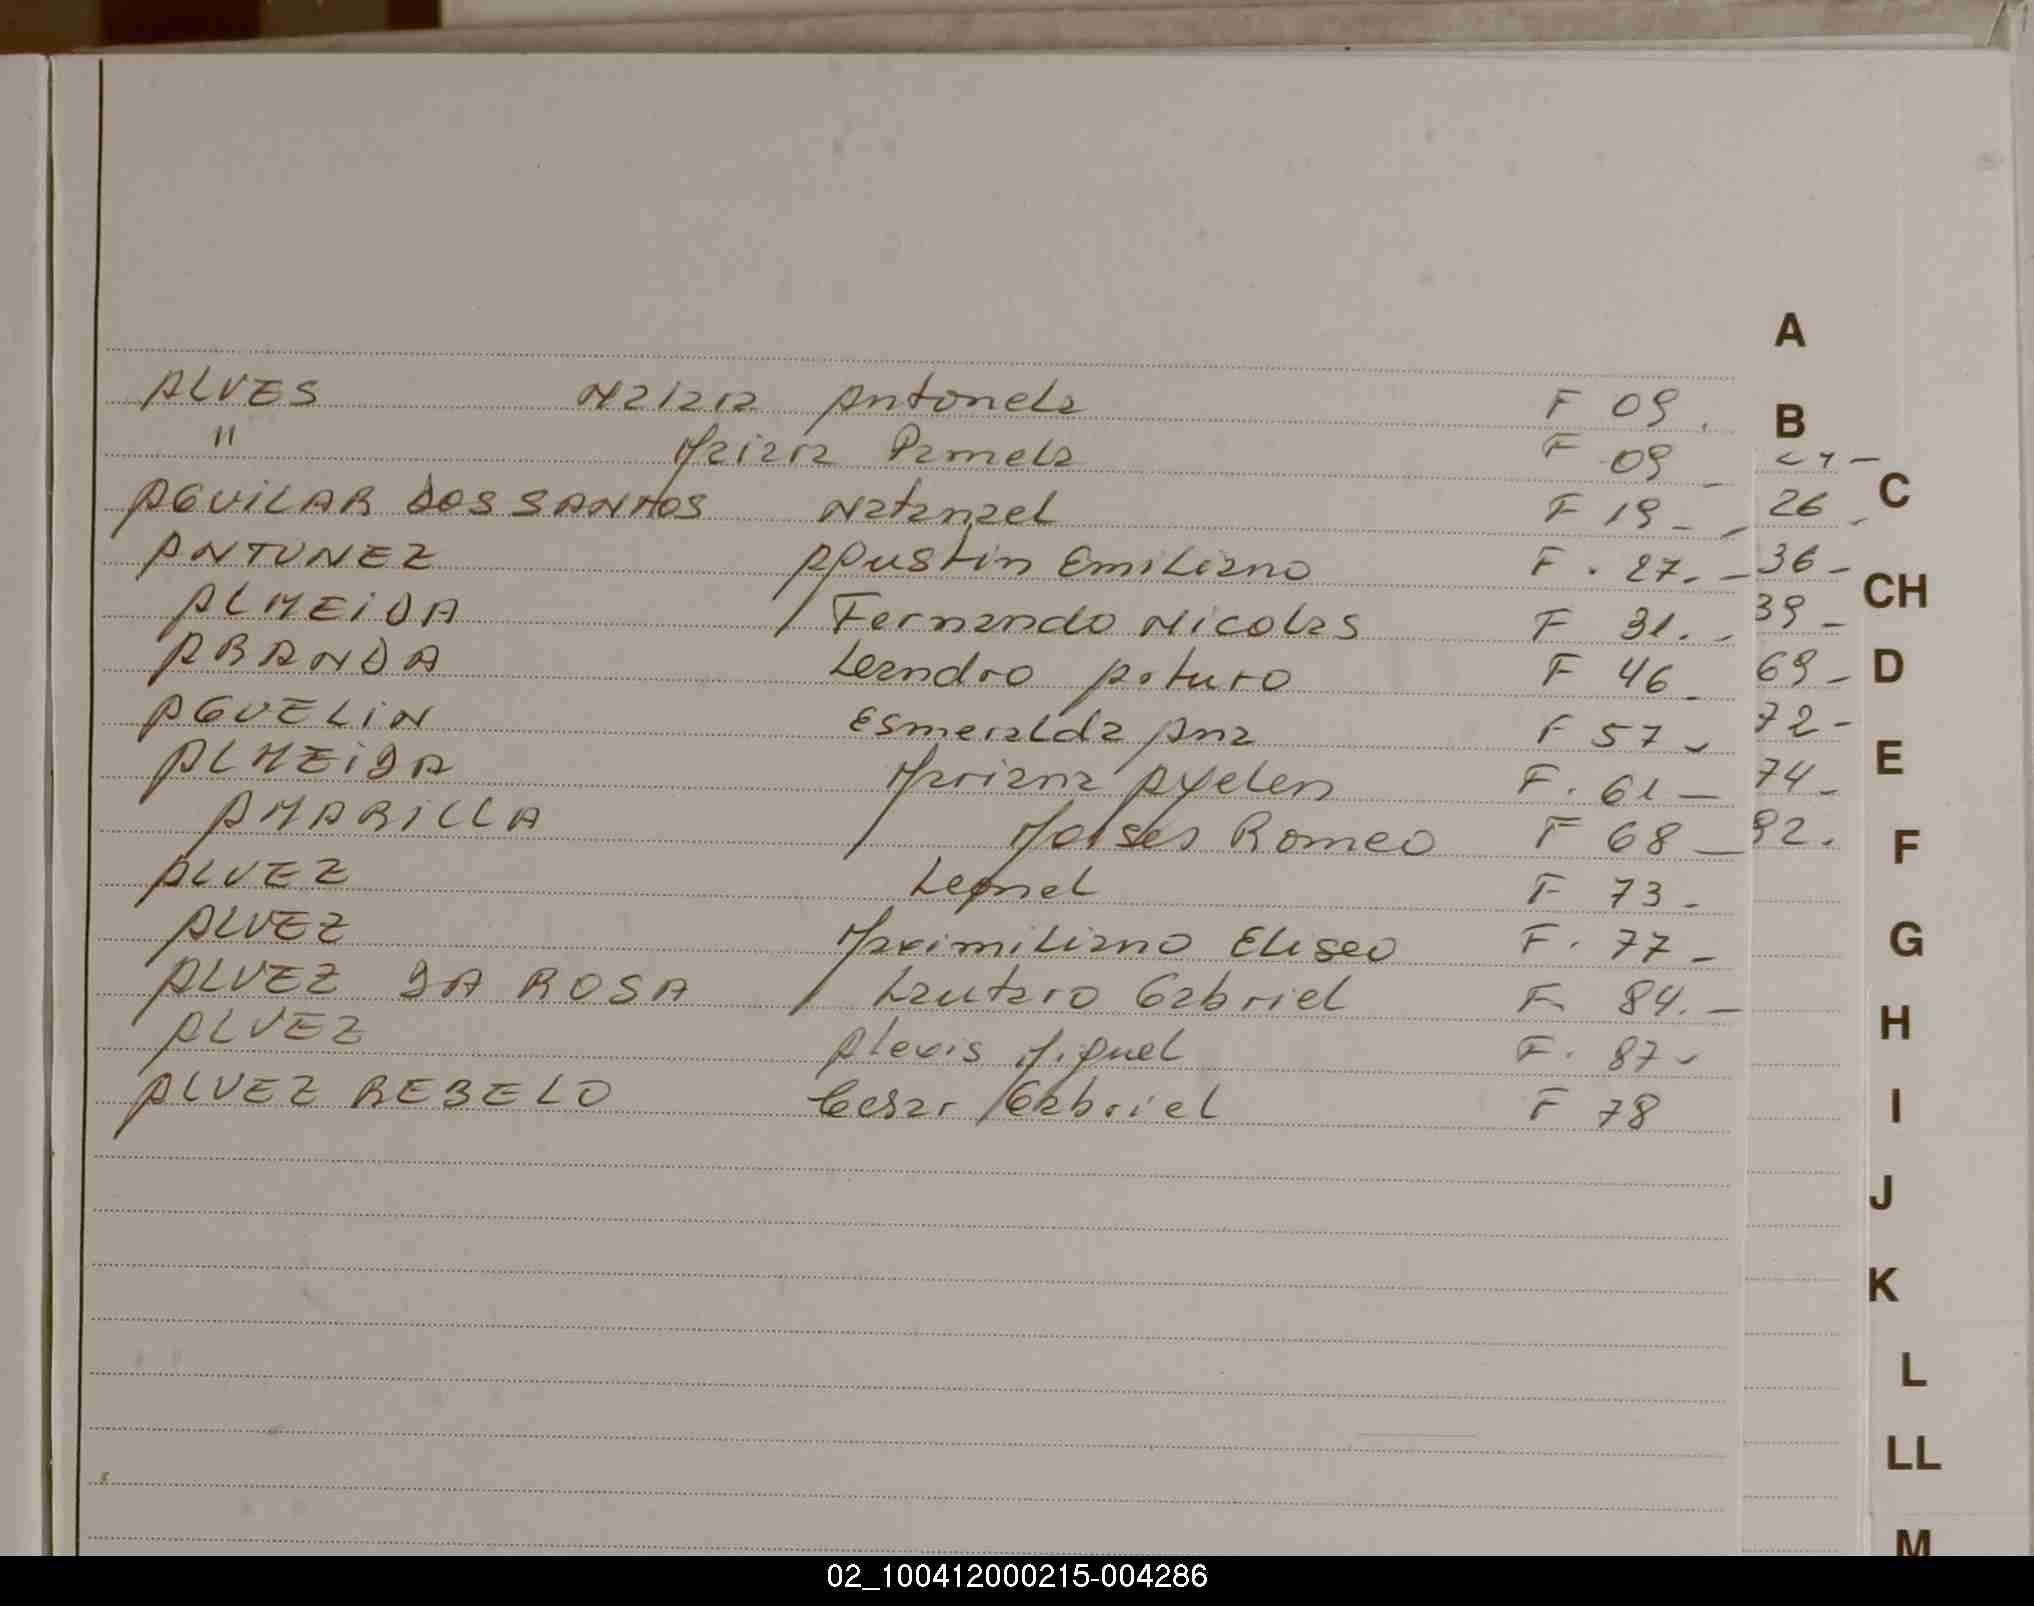 A
ALVES Naiara Antonela F 09.
B
" Maiara Pamela F 09 -
AGUILAR DOS SANTOS Natanael F 19 - - 26 -
C
ANTUNEZ Agustin Emiliano F. 27. - 36 -
CH
ALMEIDA Fernando Nicolas F 31. - 39 -
ARANDA Leandro Arturo F 46 - 69 -
D
AGUELIN Esmeralda Ana F 57 - 72 -
E
ALMEIDA Mariana Ayelen F. 61 - 74 -
AMARILLA Moises Romeo F 68 - 92.
F
ALVEZ Leonel F 73 -
ALVEZ Maximiliano Eliseo F. 77 -
G
ALVEZ DA ROSA Lautaro Gabriel F 84. -
H
ALVEZ Alexis Miguel F. 87 -
ALVEZ REBELO Cesar Gabriel F 78
I
J
K
L
LL
M
02_100412000215-004286